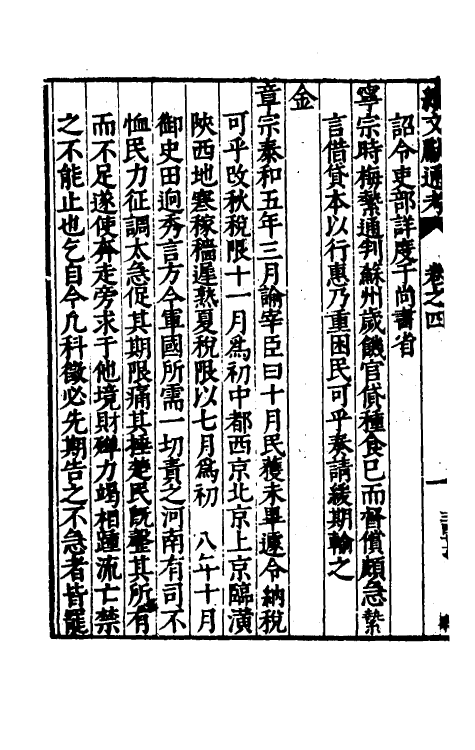 續文獻通考 卷之四
詔令吏部詳度于尚書省
寧宗時梅縶通判蘇州歲饑官貸種食已而督償頗急縶
言借貸本以行惠乃重困民可乎奏請緩期輸之
金
章宗泰和五年三月諭宰臣曰十月民穫未畢遽令納稅
可乎改秋稅限十一月爲初中都西京北京上京臨潢
陝西地寒稼穡遲熟夏稅限以七月爲初 八年十月
御史田迥秀言方今軍國所需一切責之河南有司不
恤民力征調太急促其期限痛其捶楚民旣罄其所有
而不足遂使奔走旁求于他境財殫力竭相踵流亡禁
之不能止也乞自今凡科徵必先期告之不急者皆罷